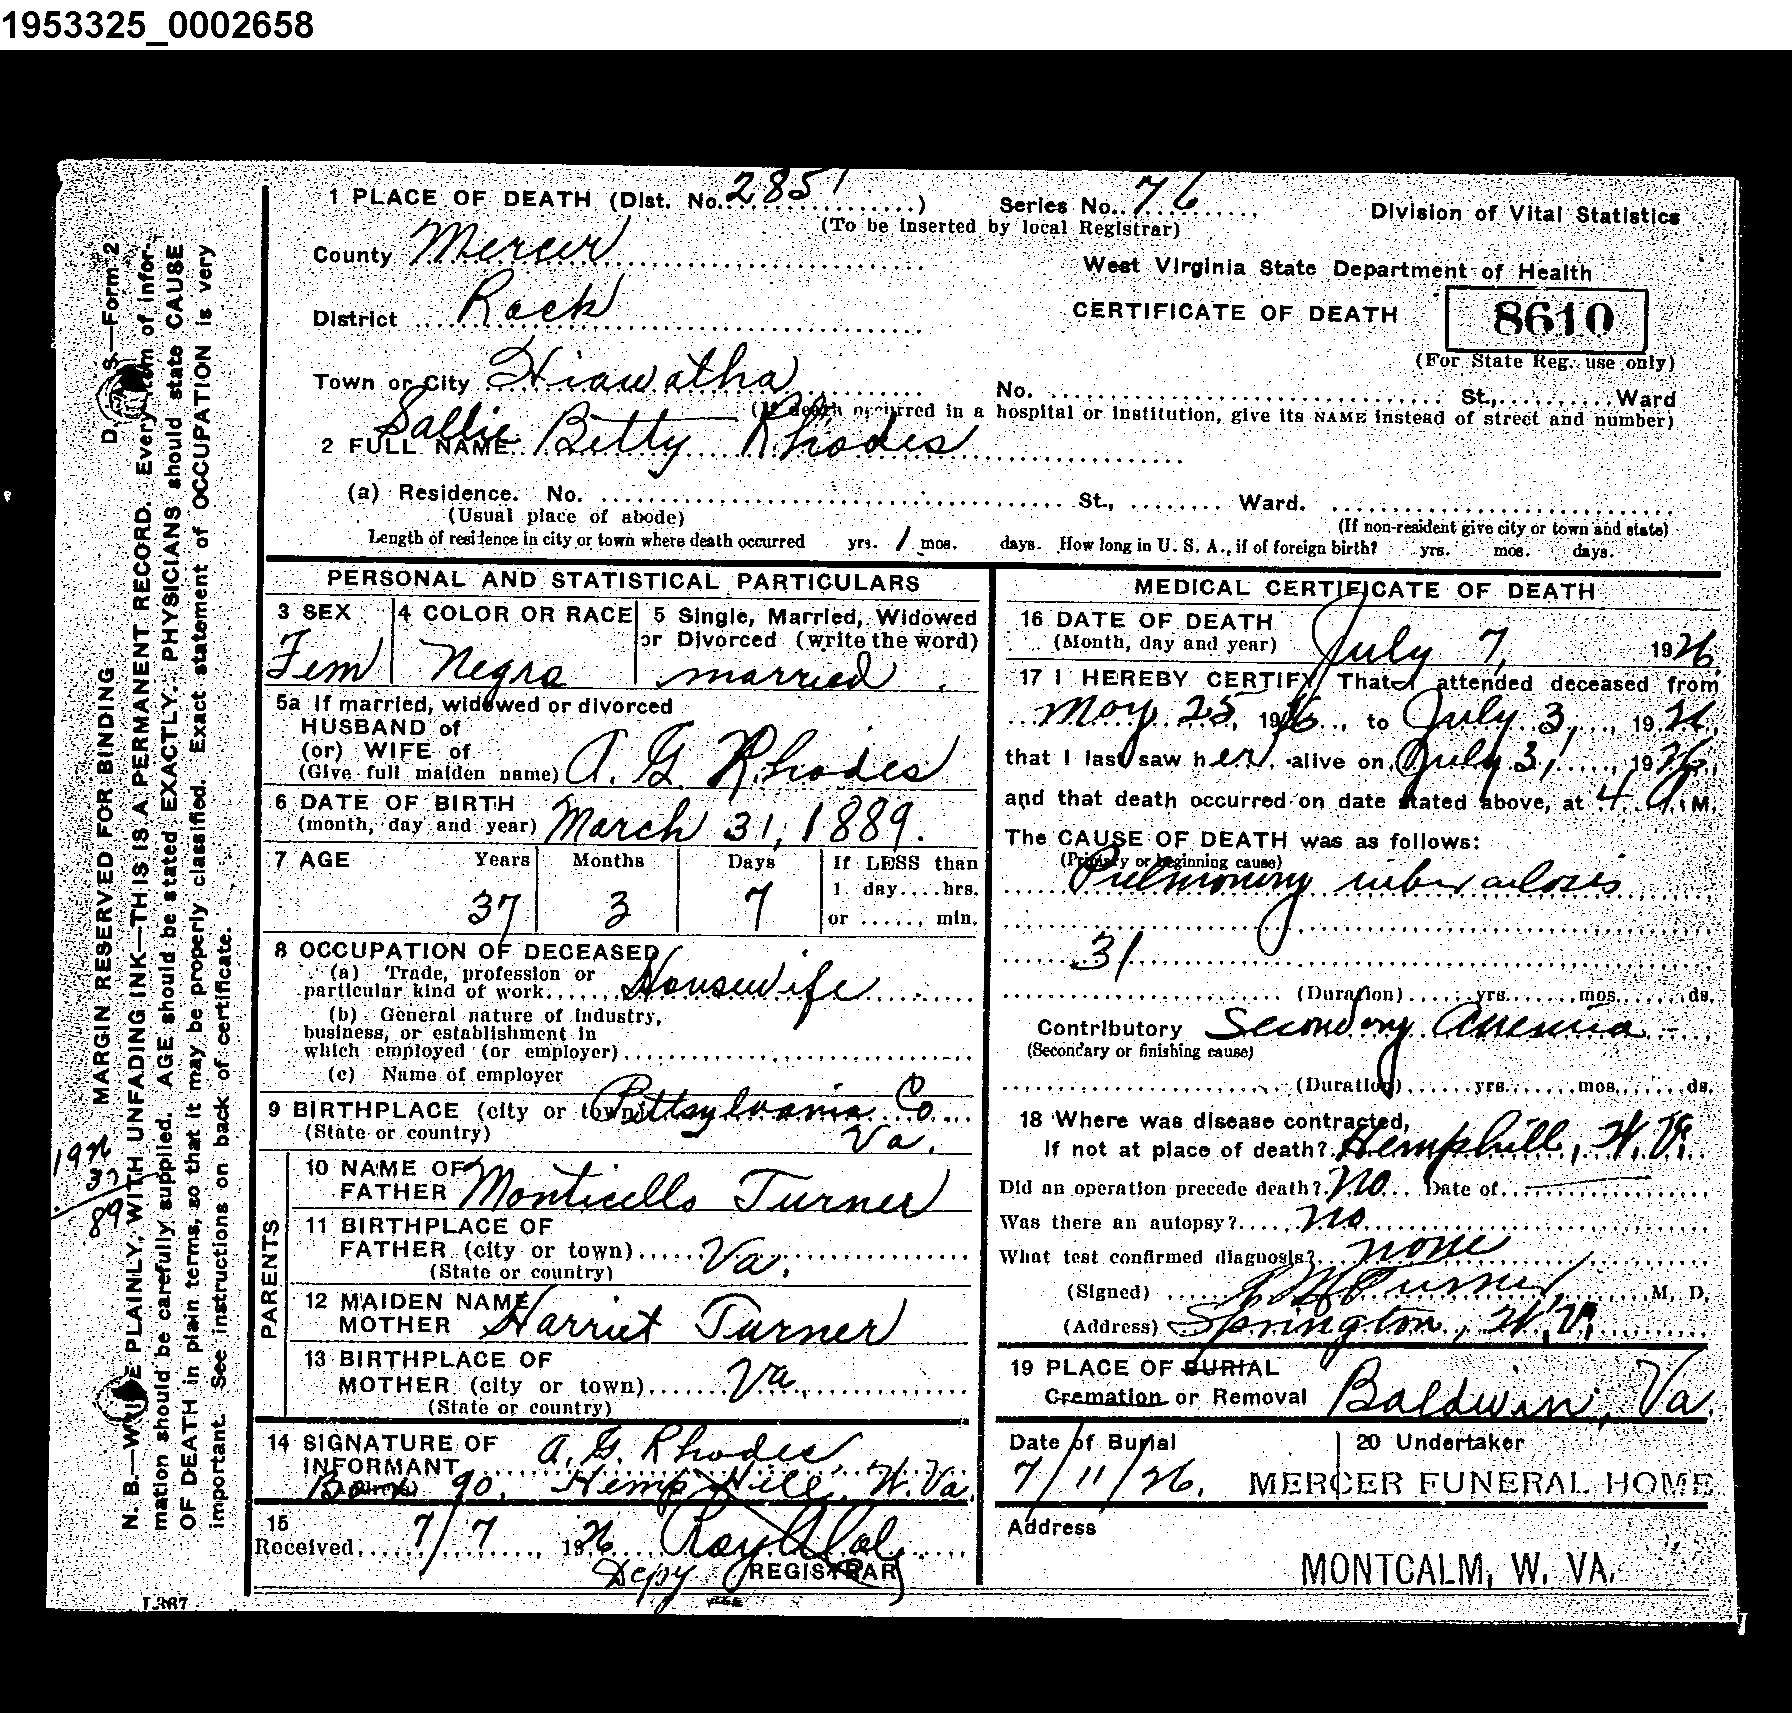 1953325_0002658
1 PLACE OF DEATH (Dist. No. 285) Series No. 76 Division of Vital Statistics
(To be inserted by local Registrar)
County Mercer
West Virginia State Department of Health
District Rock
CERTIFICATE OF DEATH 8610
(For State Reg. use only)
Town or City Hiawatha No. St., Ward
(If death occurred in a hospital or institution, give its NAME instead of street and number)
2 FULL NAME Sallie Betty Rhodes
(a) Residence. No. St., Ward.
(Usual place of abode) (If non-resident give city or town and state)
Length of residence in city or town where death occurred yrs. 1 mos. days. How long in U. S. A., if of foreign birth? yrs. mos. days.
PERSONAL AND STATISTICAL PARTICULARS
3 SEX 4 COLOR OR RACE 5 Single, Married, Widowed
or Divorced (write the word)
Fem Negro married
5a If married, widowed or divorced
HUSBAND of
(or) WIFE of
(Give full maiden name) A. G. Rhodes
6 DATE OF BIRTH
(month, day and year) March 31, 1889.
7 AGE Years Months Days If LESS than
1 day....hrs.
37 3 7 or ...... min.
8 OCCUPATION OF DECEASED
(a) Trade, profession or
particular kind of work Housewife
(b) General nature of industry,
business, or establishment in
which employed (or employer)
(c) Name of employer
9 BIRTHPLACE (city or town) Pittsylvania Co.
(State or country) Va.
PARENTS
10 NAME OF
FATHER Monticello Turner
11 BIRTHPLACE OF
FATHER (city or town) Va.
(State or country)
12 MAIDEN NAME
MOTHER Harriet Turner
13 BIRTHPLACE OF
MOTHER (city or town) Va.
(State or country)
14 SIGNATURE OF
INFORMANT A. G. Rhodes,
Box 90, Hemp Hill, W. Va.
15
Received 7/7, 1926
Depy REGISTRAR
MEDICAL CERTIFICATE OF DEATH
16 DATE OF DEATH
(Month, day and year) July 7, 1926
17 I HEREBY CERTIFY That I attended deceased from
May 25, 1926, to July 3, 1926,
that I last saw her alive on July 3, 1926,
and that death occurred on date stated above, at 4 A.M.
The CAUSE OF DEATH was as follows:
(Primary or beginning cause)
Pulmonary tuberculosis
31
(Duration) yrs. mos. ds.
Contributory Secondary Anemia
(Secondary or finishing cause)
(Duration) yrs. mos. ds.
18 Where was disease contracted,
If not at place of death? Hemphill, W. Va.
Did an operation precede death? No Date of
Was there an autopsy? No
What test confirmed diagnosis? none
(Signed) Turner, M. D.
(Address) Springton, W. Va.
19 PLACE OF BURIAL
Cremation or Removal Baldwin, Va.
Date of Burial 20 Undertaker
7/11/26. MERCER FUNERAL HOME
Address
MONTCALM, W. VA.
D. S.—Form 2
MARGIN RESERVED FOR BINDING
N. B.—WRITE PLAINLY, WITH UNFADING INK—THIS IS A PERMANENT RECORD. Every item of infor-
mation should be carefully supplied. AGE should be stated EXACTLY. PHYSICIANS should state CAUSE
OF DEATH in plain terms, so that it may be properly classified. Exact statement of OCCUPATION is very
important. See instructions on back of certificate.
1926
37
89
L-367